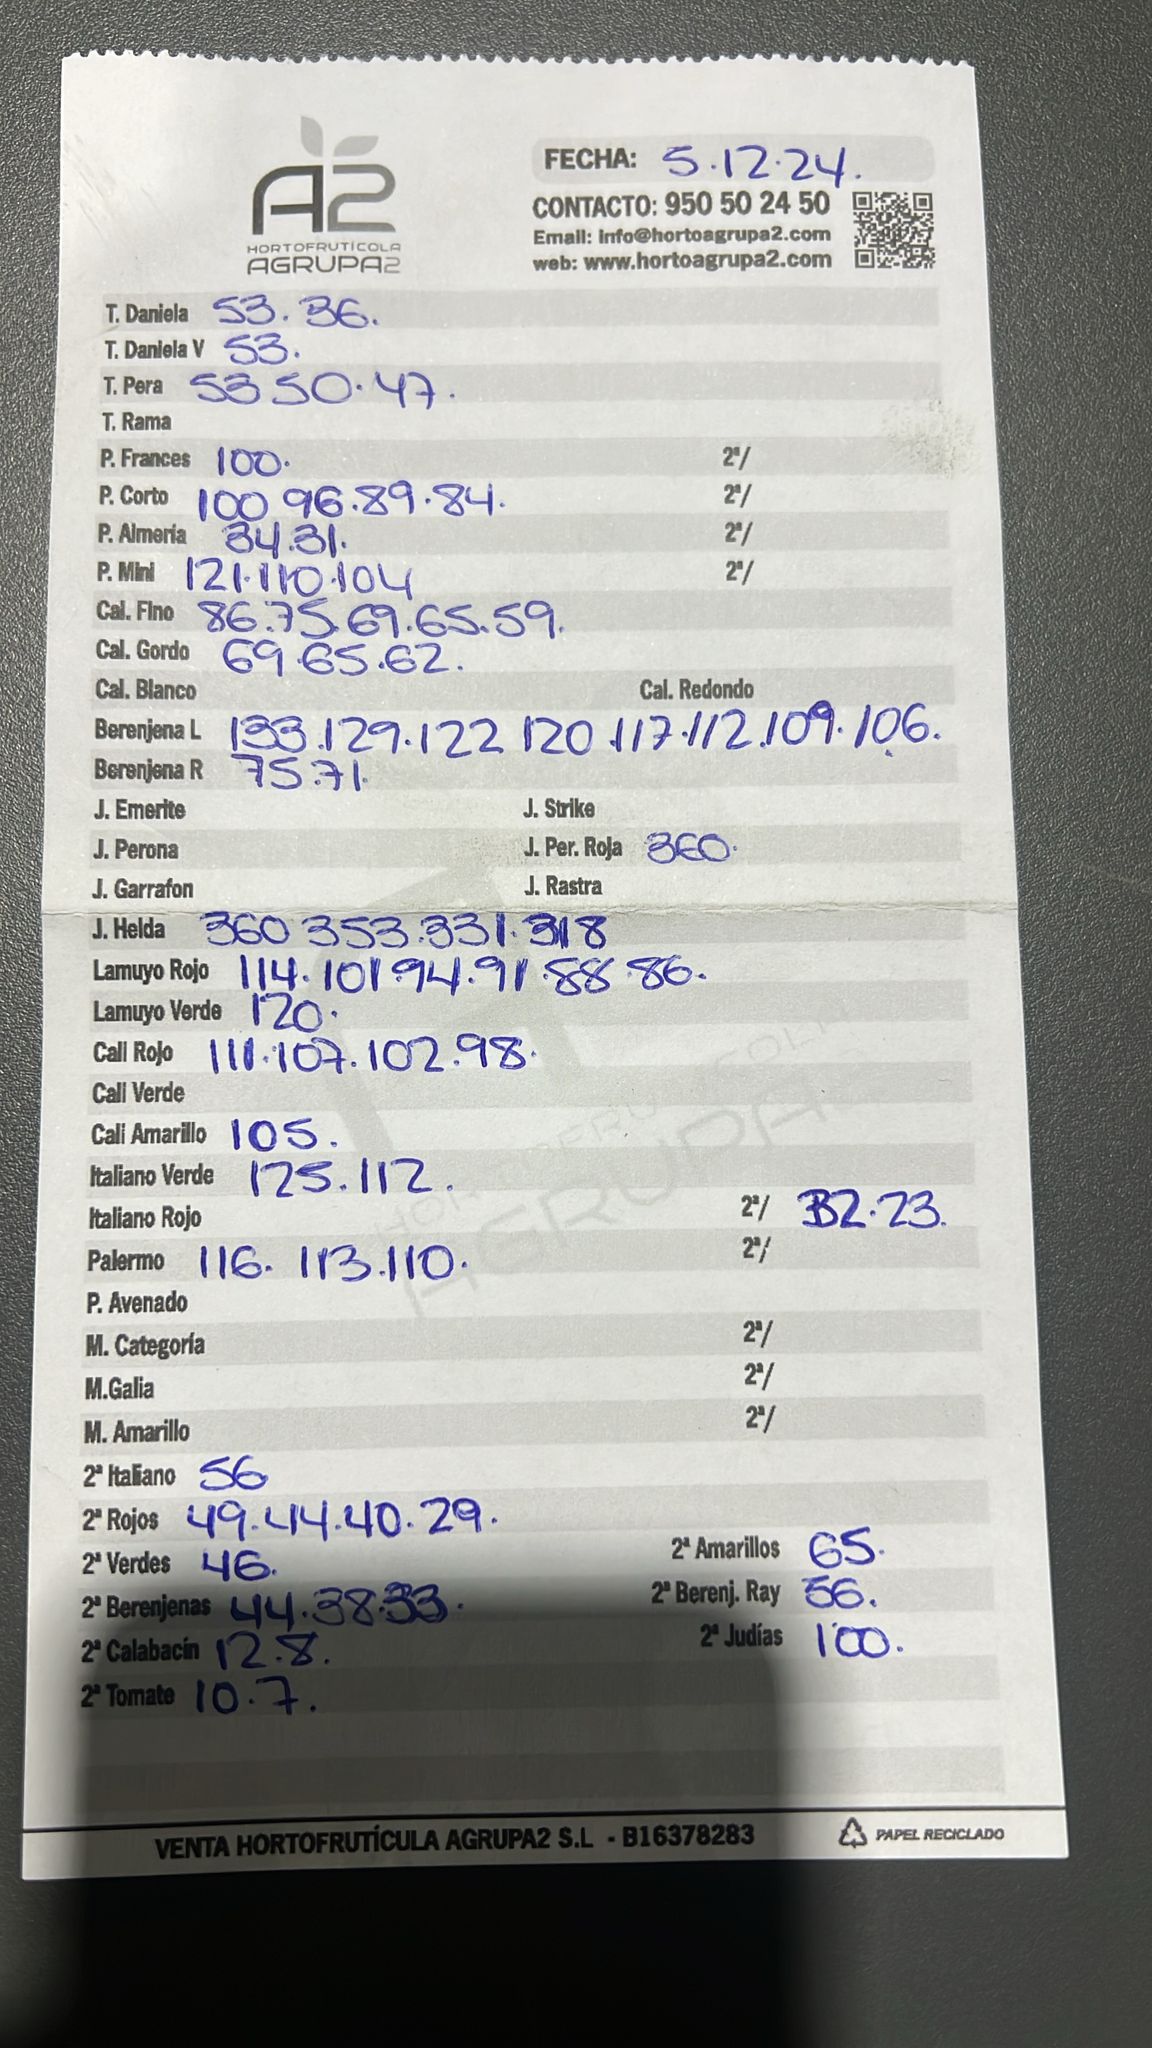 A2
HORTOFRUTÍCOLA
AGRUPA2
FECHA: 5.12.24.
CONTACTO: 950 50 24 50
Email: info@hortoagrupa2.com
web: www.hortoagrupa2.com
T. Daniela 53. 36.
T. Daniela V 53.
T. Pera 53 50. 47.
T. Rama
P. Frances 100. 2ª/
P. Corto 100 96. 89. 84. 2ª/
P. Almería 34.31. 2ª/
P. Mini 121.110.104 2ª/
Cal. Fino 86.75.69.65.59.
Cal. Gordo 69.65.62.
Cal. Blanco Cal. Redondo
Berenjena L 133.129.122 120.117.112.109.106.
Berenjena R 75.71.
J. Emerite J. Strike
J. Perona J. Per. Roja 360.
J. Garrafon J. Rastra
J. Helda 360 353.331.318
Lamuyo Rojo 114.101.94.91.88.86.
Lamuyo Verde 120.
Cali Rojo 111.107.102.98.
Cali Verde
Cali Amarillo 105.
Italiano Verde 125.112.
Italiano Rojo 2ª/ 32.23.
Palermo 116. 113.110. 2ª/
P. Avenado
M. Categoría 2ª/
M.Galia 2ª/
M. Amarillo 2ª/
2ª Italiano 56
2ª Rojos 49.44.40.29.
2ª Verdes 46. 2ª Amarillos 65.
2ª Berenjenas 44.38.33. 2ª Berenj. Ray 56.
2ª Calabacín 12.8. 2ª Judías 100.
2ª Tomate 10.7.
VENTA HORTOFRUTÍCULA AGRUPA2 S.L - B16378283
PAPEL RECICLADO